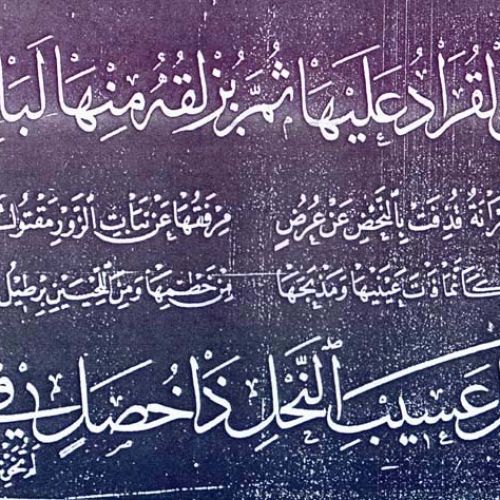 لْقُرَادُ عَلَيْهَا ثُمَّ يُزْلِقُهُ مِنْهَا لَبَا
رَانَةٌ قُذِفَتْ بِٱلنَّحْضِ عَنْ عُرُضٍ مِرْفَقُهَا عَنْ بَنَاتِ ٱلزَّوْرِ مَفْتُولُ
كَأَنَّمَا فَاتَ عَيْنَيْهَا وَمَذْبَحَهَا مِنْ خَطْمِهَا وَمِنَ ٱللَّحْيَيْنِ بِرْطِيلُ
لَ عَسِيبِ ٱلنَّخْلِ ذَا خُصَلٍ فِي